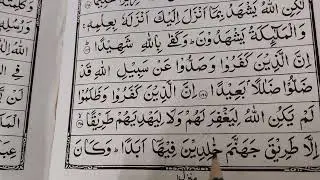 لٰكِنِ اللّٰهُ يَشْهَدُ بِمَاۤ اَنْزَلَ اِلَيْكَ اَنْزَلَهٗ بِعِلْمِهٖ ۚ
وَالْمَلٰٓئِكَةُ يَشْهَدُوْنَ ؕ وَكَفٰى بِاللّٰهِ شَهِيْدًا ؕ
اِنَّ الَّذِيْنَ كَفَرُوْا وَصَدُّوْا عَنْ سَبِيْلِ اللّٰهِ قَدْ
ضَلُّوْا ضَلٰلًاۢ بَعِيْدًا اِنَّ الَّذِيْنَ كَفَرُوْا وَظَلَمُوْا
لَمْ يَكُنِ اللّٰهُ لِيَغْفِرَ لَهُمْ وَلَا لِيَهْدِيَهُمْ طَرِيْقًا ۙ
اِلَّا طَرِيْقَ جَهَنَّمَ خٰلِدِيْنَ فِيْهَاۤ اَبَدًا ؕ وَكَانَ